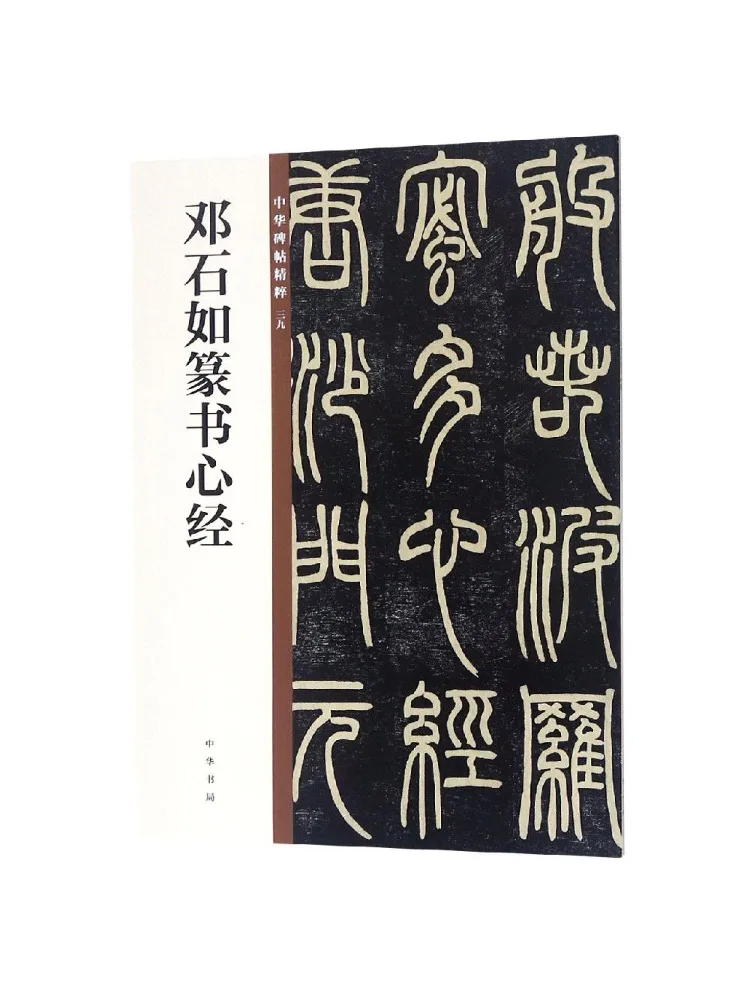 邓石如篆书心经
中华书局
中华碑帖精粹 三九
般若波羅
蜜多心經
唐沙門元